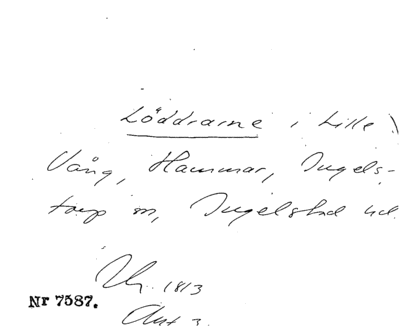 Löddrarne i Lille
Vång, Hammar, Ingels-
torp m, Ingelstad hd.
1813
Nr 7587.
Ant 3.